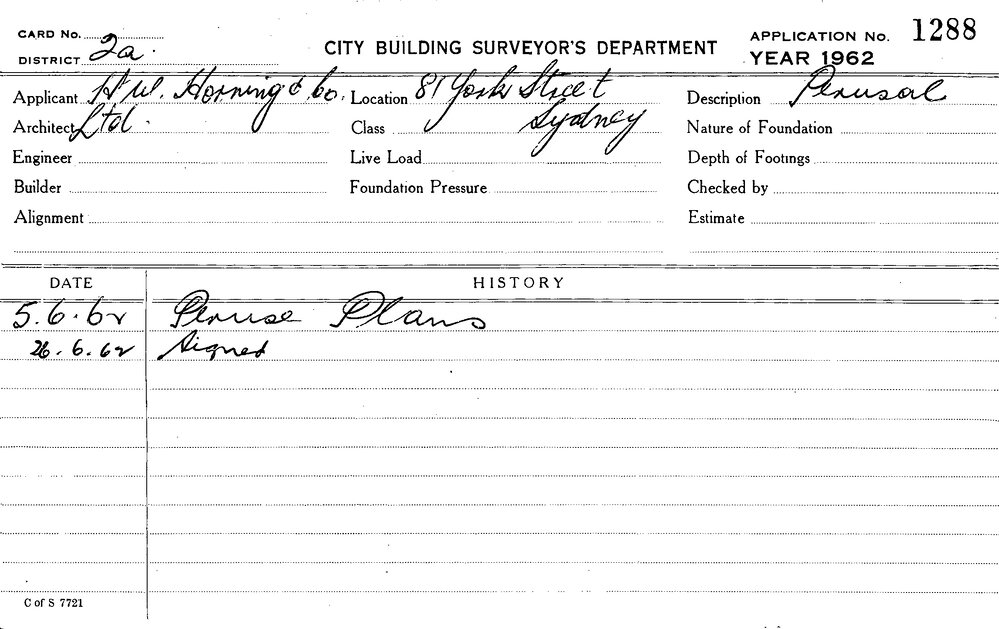 CARD No.
DISTRICT 2a.
CITY BUILDING SURVEYOR'S DEPARTMENT
APPLICATION No. 1288
YEAR 1962
Applicant H.W. Horning & Co. Location 81 York Street Description Perusal
Architect Ltd. Class Sydney Nature of Foundation
Engineer Live Load Depth of Footings
Builder Foundation Pressure Checked by
Alignment Estimate
DATE HISTORY
5.6.62 Peruse Plans
26.6.62 Signed
C of S 7721